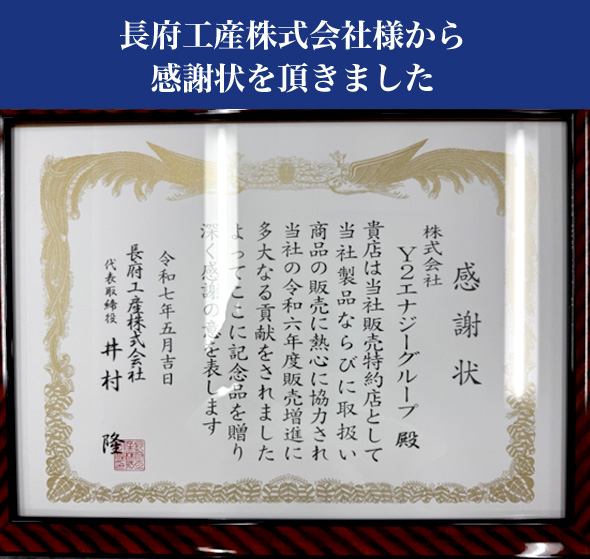 長府工産株式会社様から
感謝状を頂きました
感謝状
株式会社
Y2エナジーグループ 殿
貴店は当社販売特約店として
当社製品ならびに取扱い
商品の販売に熱心に協力され
当社の令和六年度販売増進に
多大なる貢献をされました
よってここに記念品を贈り
深く感謝の意を表します
令和七年五月吉日
長府工産株式会社
代表取締役 井村 隆